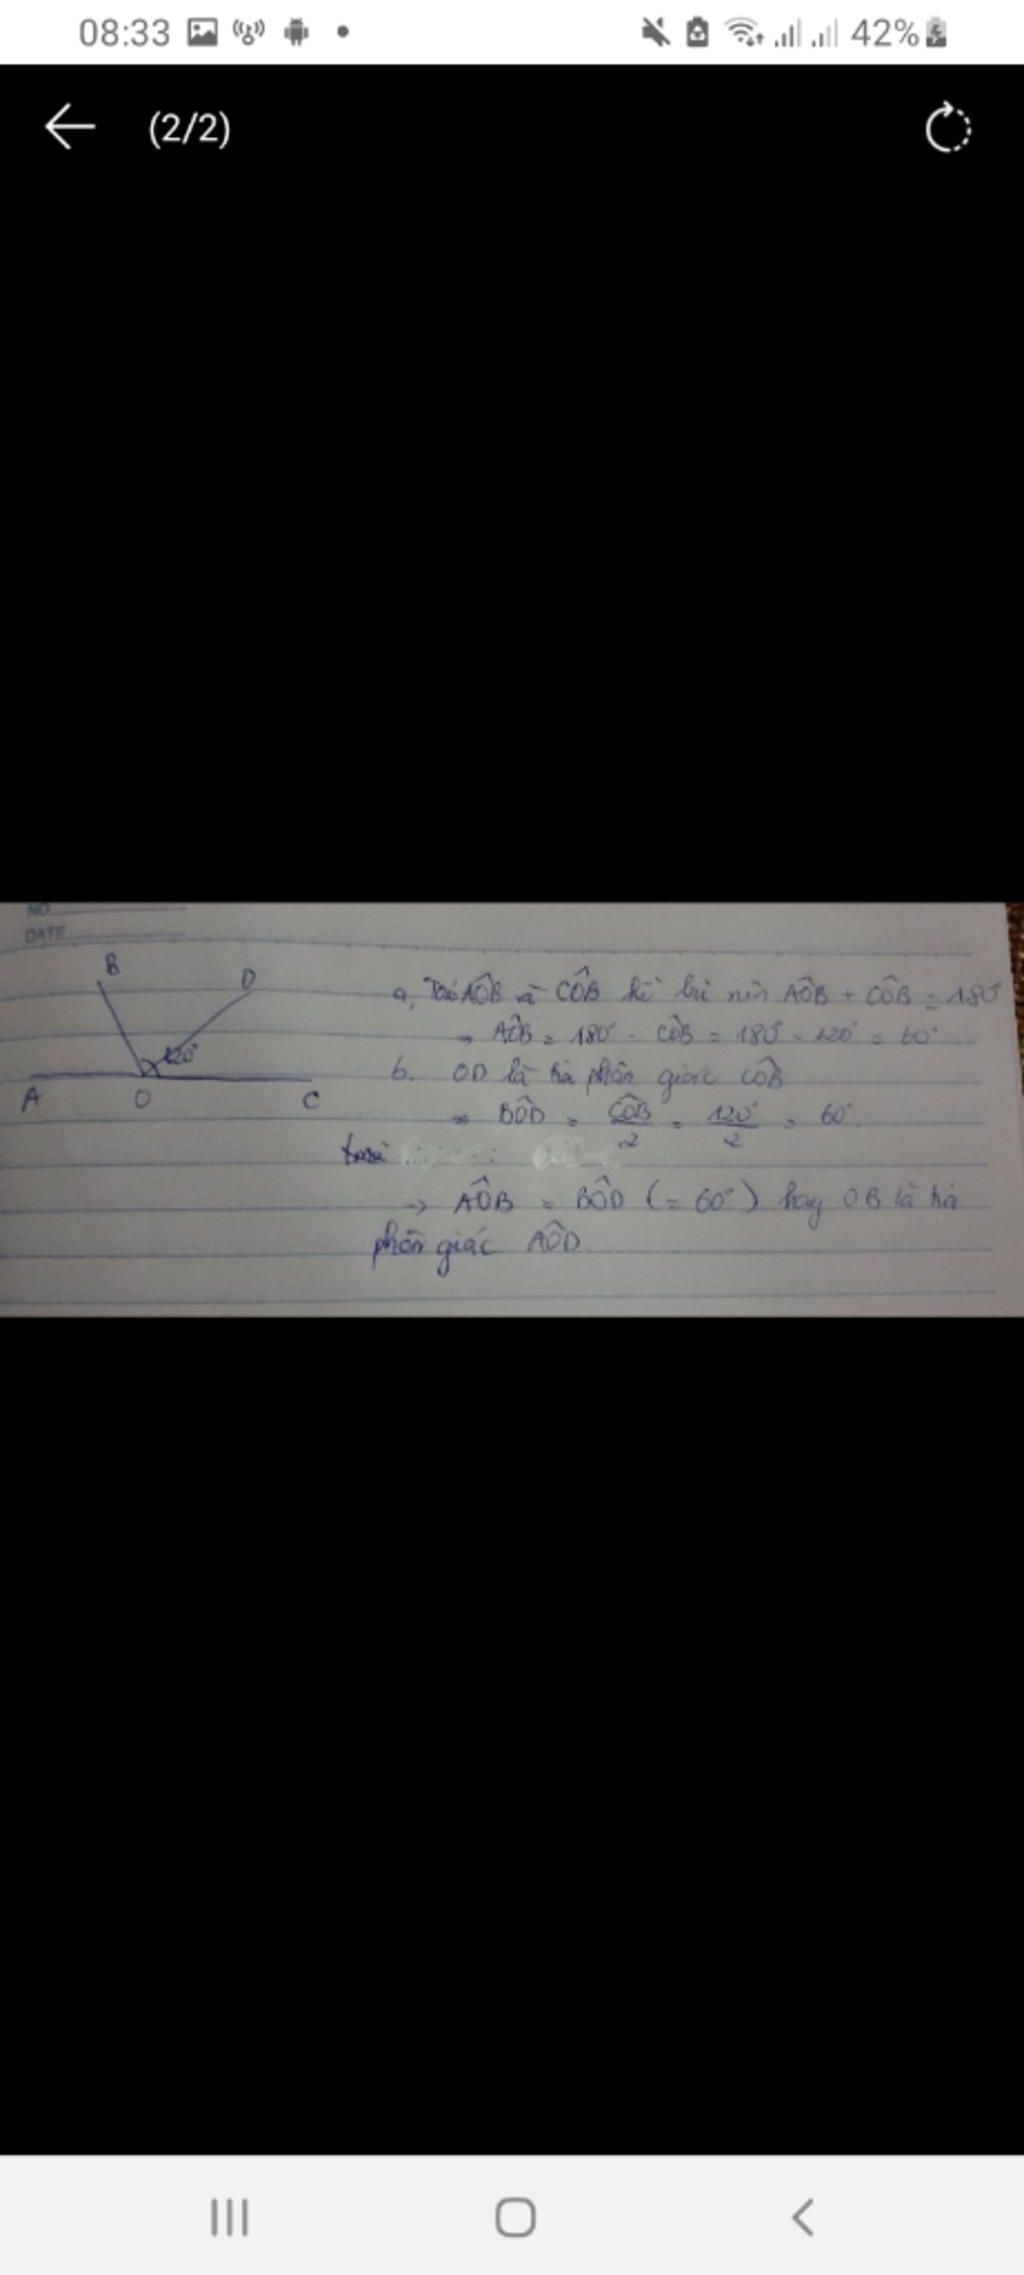 08:33
42%
(2/2)
NO
DATE
B
D
120°
A
O
C
a, AÔB và CÔB kề bù nên AÔB + CÔB = 180°
⇒ AÔB = 180° - CÔB = 180° - 120° = 60°
b. OD là tia phân giác CÔB
⇒ BÔD = CÔB/2 = 120°/2 = 60°.
→ AÔB = BÔD (= 60°) hay OB là tia
phân giác AÔD.